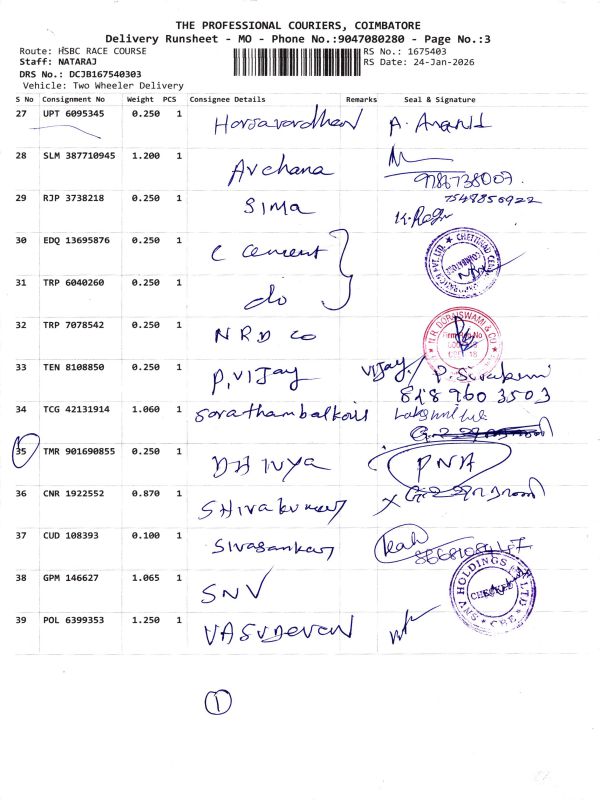 THE PROFESSIONAL COURIERS, COIMBATORE
Delivery Runsheet - MO - Phone No.:9047080280 - Page No.:3
Route: HSBC RACE COURSE RS No.: 1675403
Staff: NATARAJ RS Date: 24-Jan-2026
DRS No.: DCJB167540303
Vehicle: Two Wheeler Delivery
S No Consignment No Weight PCS Consignee Details Remarks Seal & Signature
27 UPT 6095345 0.250 1 A. Anand
28 SLM 387710945 1.200 1 Archana
29 RJP 3738218 0.250 1 SIMA 7548850922
30 EDQ 13695876 0.250 1 C Cement
31 TRP 6040260 0.250 1 do
32 TRP 7078542 0.250 1 NRD CO N.R. DORAISWAMI & CO
33 TEN 8108850 0.250 1 P. VIJay VIJay
818 960 3503
34 TCG 42131914 1.060 1
35 TMR 901690855 0.250 1 DHIVYA PNA
36 CNR 1922552 0.870 1 SHIVAkumar
37 CUD 108393 0.100 1 Sivasankar
38 GPM 146627 1.065 1 SNV SNV HOLDINGS CBE
39 POL 6399353 1.250 1 VASUDEVAN
1